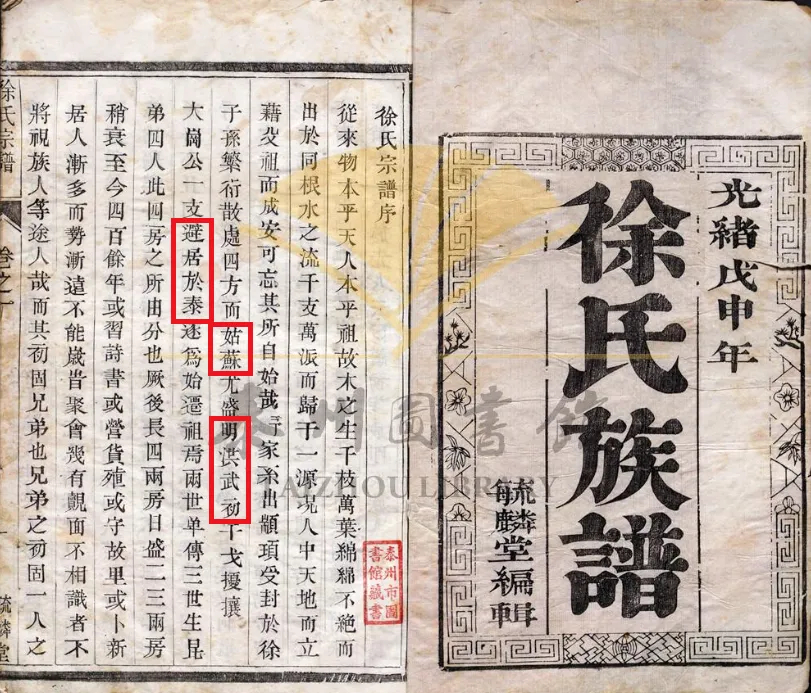 光緒戊申年
徐氏族譜
毓麟堂編輯
徐氏宗譜序
從來物本乎天人本乎祖故木之生千枝萬葉綿綿不絶而
出於同根水之流千支萬派而歸于一源況人中天地而立
藉父祖而成安可忘其所自始哉吾家系出顓頊受封於徐
子孫繁衍散處四方而姑蘇尤盛明洪武初干戈擾攘
大崗公一支避居於泰遂爲始遷祖焉兩世单傳三世生昆
弟四人此四房之所由分也厥後長四兩房日盛二三兩房
稍衰至今四百餘年或習詩書或營貨殖或守故里或卜新
居人漸多而勢漸遠不能歲皆聚會幾有覿面不相識者不
將視族人等途人哉而其初固兄弟也兄弟之初固一人之
徐氏宗譜
卷之一
毓麟堂
泰州市圖
書館藏書
泰州圖書館
TAIZHOU LIBRARY